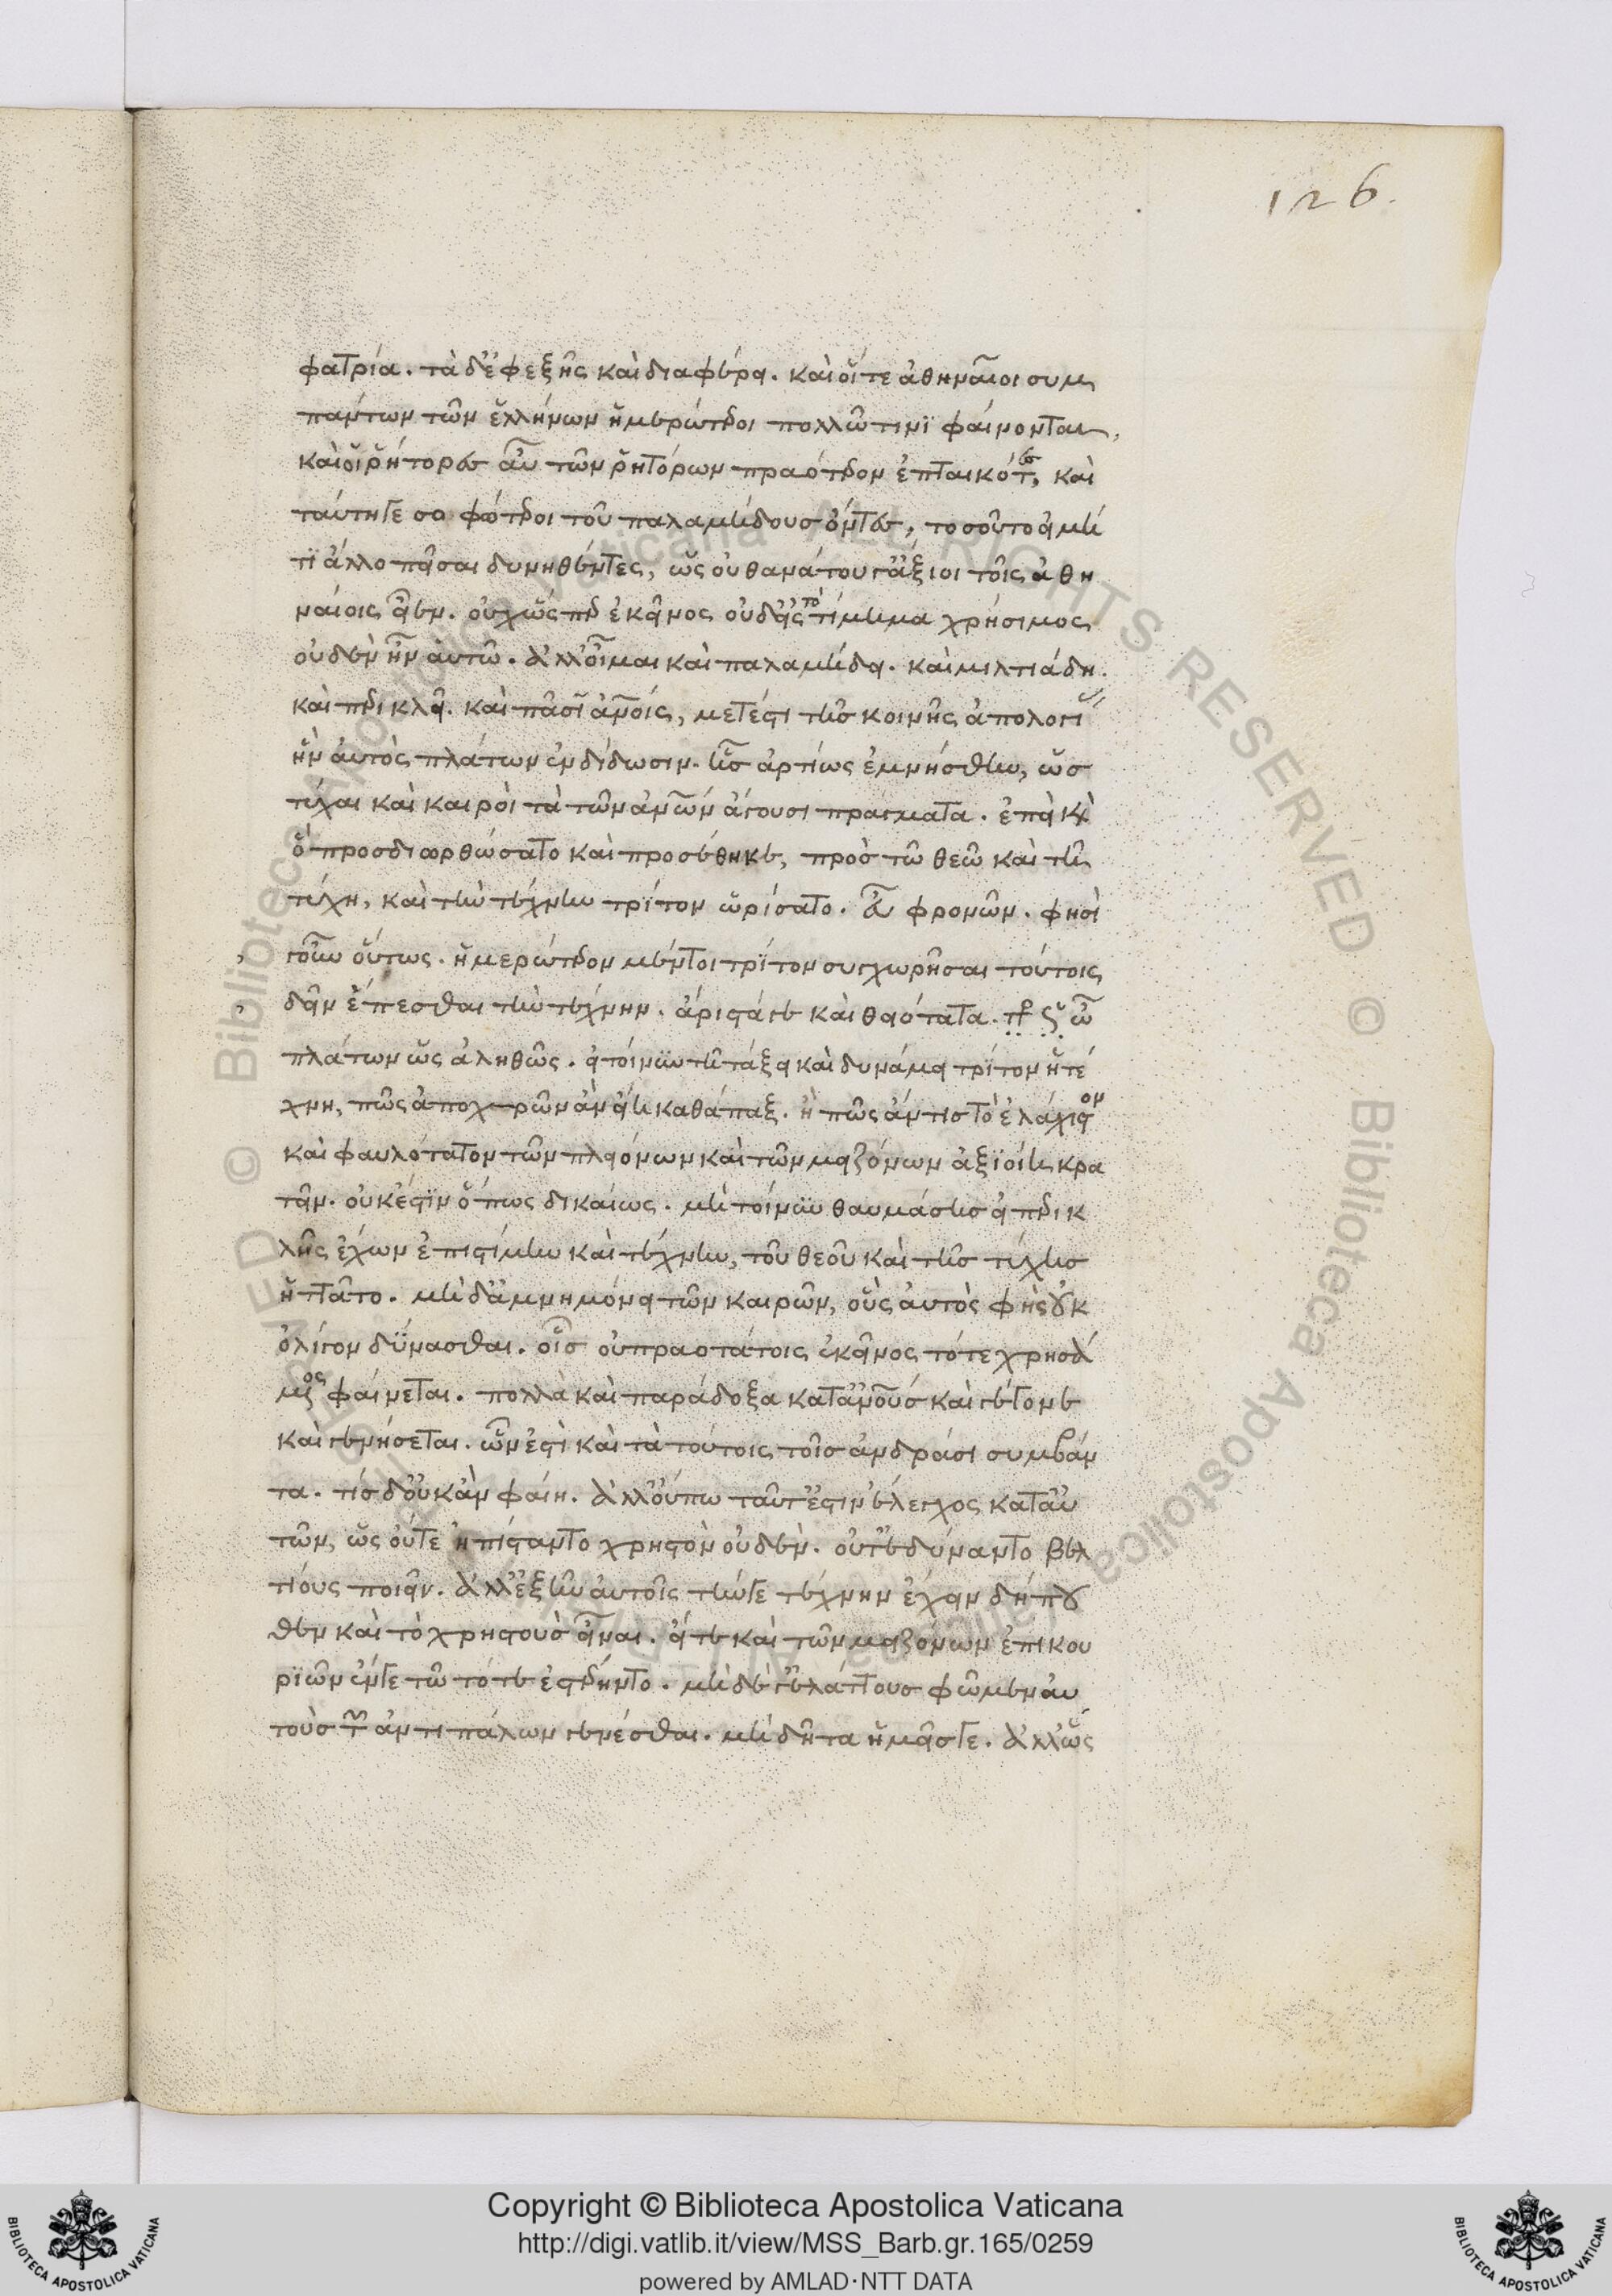 126.
φατρία. τὰ δ' ἐφεξῆς καὶ διαφέρει. καὶ οἵ τε ἀθηναῖοι συμ
πάντων τῶν ἑλλήνων ἡμερώτεροι πολλῶ τινι φαίνονται,
καὶ οἱ ῥήτορες αὖ τῶν ῥητόρων πραότερον ἐπταικότες, καὶ
ταύτῃγε σοφώτεροι τοῦ παλαμήδους ὄντες, τοσοῦτο εἰ μή
τι ἄλλο πεῖσαι δυνηθέντες, ὡς οὐ θανάτου γ' ἄξιοι τοῖς ἀθη
ναίοις εἶεν. οὐχ ὥσπερ ἐκεῖνος οὐδ' εἰς τὸ τίμημα χρήσιμος
οὐδὲν ἦν αὑτῶ. ἀλλ' οἶμαι καὶ παλαμήδει. καὶ μιλτιάδη.
καὶ περικλεῖ. καὶ πᾶσιν ἀνθρώποις, μέτεστι τῆς κοινῆς ἀπολογίας
ἣν αὐτὸς πλάτων ἐνδίδωσιν. ἧς ἀρτίως ἐμνήσθην, ὡς
τύχαι καὶ καιροὶ τὰ τῶν ἀνθρώπων ἄγουσι πράγματα. ἐπεὶ καὶ
ὃ προσδιωρθώσατο καὶ προσέθηκε, πρὸς τῶ θεῶ καὶ τῆ
τύχη, καὶ τὴν τέχνην τρίτον ὡρίσατο. εὖ φρονῶν. φησὶ
γοῦν οὕτως. ἡμερώτερον μέντοι τρίτον συγχωρῆσαι τούτοις
δεῖν ἕπεσθαι τὴν τέχνην. ἄριστά γε καὶ θειότατα. ὦ
πλάτων ὡς ἀληθῶς. εἰ τοίνυν τῆ τάξει καὶ δυνάμει τρίτον ἡ τέ
χνη, πῶς ἀποχρῶν ἂν εἴη καθάπαξ. ἢ πῶς ἄν τις τὸ ἐλάχιστον
καὶ φαυλότατον τῶν πλειόνων καὶ τῶν μειζόνων ἀξιοίη κρα
τεῖν. οὐκ ἔστιν ὅπως δικαίως. μὴ τοίνυν θαυμάσῃς εἰ περικ
λῆς ἔχων ἐπιστήμην καὶ τέχνην, τοῦ θεοῦ καὶ τῆς τύχης
ἡττᾶτο. μὴ δ' ἀμνημόνει τῶν καιρῶν, οὓς αὐτὸς φὴς οὐκ
ὀλίγον δύνασθαι. οἷς οὐ πραοτάτοις ἐκεῖνος τότε χρησά
μενος φαίνεται. πολλὰ καὶ παράδοξα κατ' ἀνθρώπους καὶ γέγονε
καὶ γενήσεται. ὧν ἐστὶ καὶ τὰ τούτοις τοῖς ἀνδράσι συμβάν
τα. τίς δ' οὐκ ἂν φαίη. ἀλλ' οὔπω ταῦτ' ἔστιν ἔλεγχος κατ' αὐ
τῶν, ὡς οὔτε ἠπίσταντο χρηστὸν οὐδέν. οὔτ' ἐδύναντο βελ
τίους ποιεῖν. ἀλλ' ἐξῆν αὐτοῖς τήν γε τέχνην ἔχειν δήπου
θεν καὶ τὸ χρηστοὺς εἶναι. εἴ γε καὶ τῶν μειζόνων ἐπικου
ριῶν ἔν γε τῶ τότε ἐστέρηντο. μὴ δέ γ' ἐλάττους φῶμεν αὐ
τοὺς τῶν ἀντιπάλων γενέσθαι. μὴ δῆτα ἡμεῖς γε. ἀλλ' ὡς
Copyright © Biblioteca Apostolica Vaticana
http://digi.vatlib.it/view/MSS_Barb.gr.165/0259
powered by AMLAD·NTT DATA